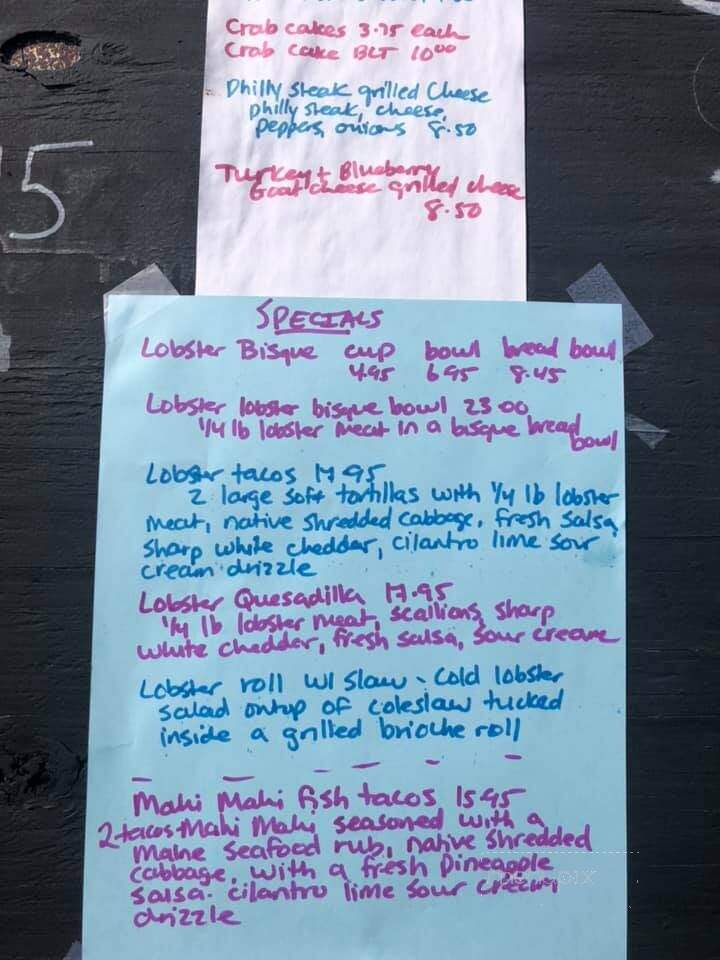 Crab cakes 3.75 each
Crab cake BLT 10⁰⁰
Philly steak grilled Cheese
philly steak, cheese,
peppers, onions 8.50
Turkey + Blueberry
Goat cheese grilled cheese
8.50
5
SPECIALS
Lobster Bisque cup bowl bread bowl
4.95 6.95 8.45
Lobster lobster bisque bowl 23.00
1/4 lb lobster meat in a bisque bread
bowl
Lobster tacos 17.95
2 large soft tortillas with 1/4 lb lobster
meat, native shredded cabbage, fresh salsa,
sharp white cheddar, cilantro lime sour
cream drizzle
Lobster Quesadilla 17.95
1/4 lb lobster meat, scallions, sharp
white cheddar, fresh salsa, sour cream
Lobster roll w/ slaw - cold lobster
salad ontop of coleslaw tucked
inside a grilled brioche roll
Mahi Mahi fish tacos 15.95
2 tacos - Mahi Mahi seasoned with a
Maine seafood rub, native shredded
cabbage, with a fresh pineapple
salsa. cilantro lime sour cream
drizzle